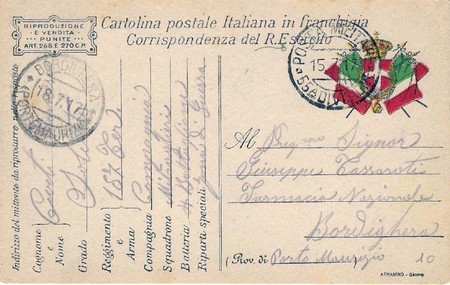 RIPRODUZIONE
E VENDITA
PUNITE
ART. 268 E 270 C.P.
Cartolina postale Italiana in franchigia
Corrispondenza del R. Esercito
POSTA MILITARE
15.7.17
BORDIGHERA
18.7.17
(PORTO MAURIZIO)
Indirizzo del mittente da riprodursi nelle risposte
Cognome
e
Nome
Grado
Reggimento 167
e
Arma
Compagnia Compagnia
Squadrone Mitraglieri
Batteria 4 Battaglione
Riparti speciali Zona di Guerra
Al Signor
Giuseppe
Farmacia Nazionale
Bordighera
(Prov. di Porto Maurizio)
10
ARMANINO - GENOVA